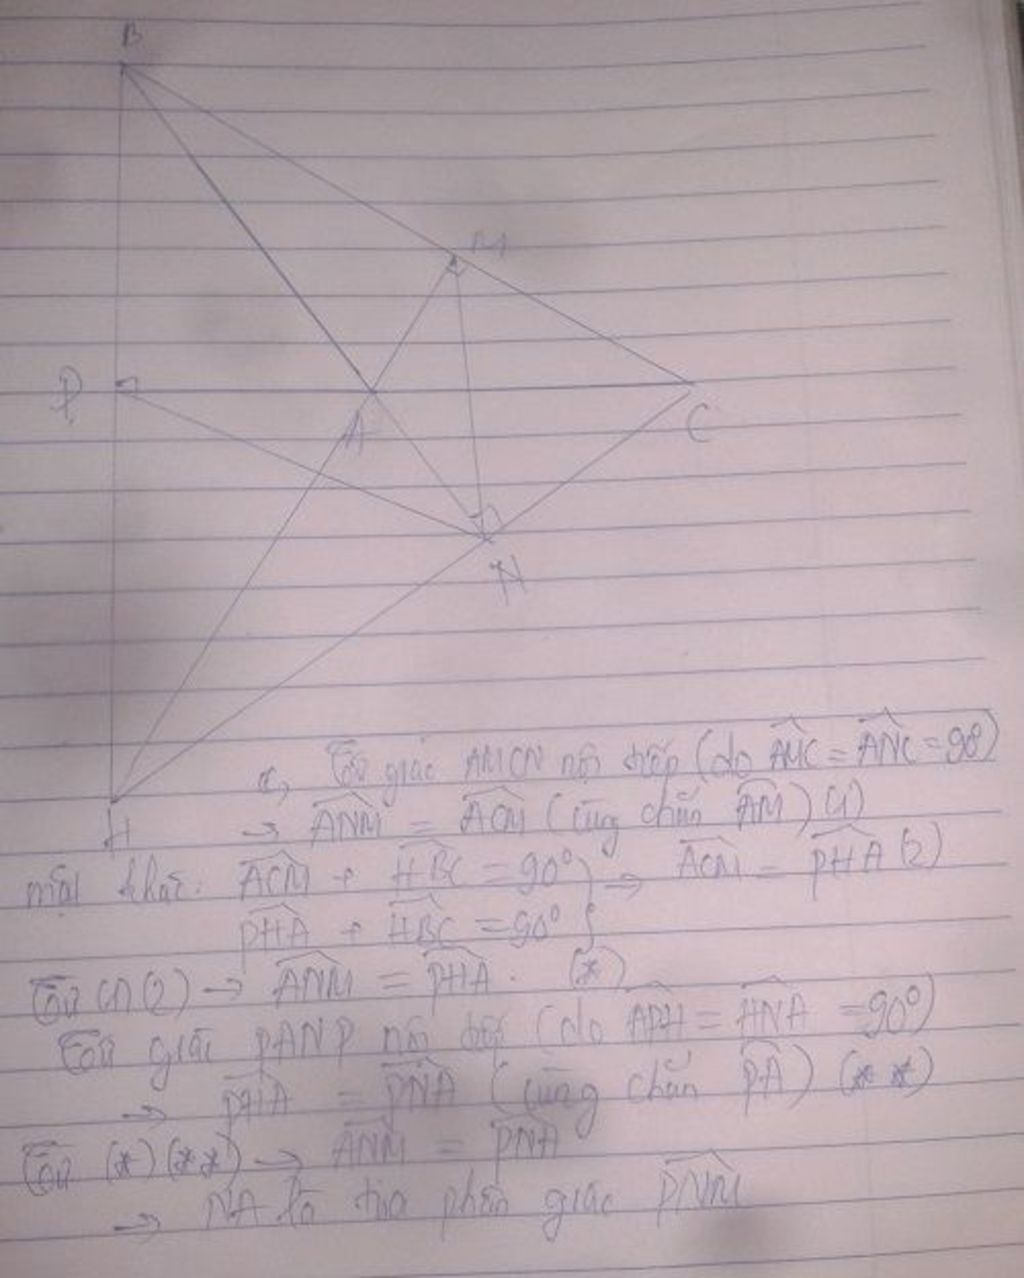 B
M
P
A
C
N
H
c, Tứ giác AMCN nội tiếp (do AMC = ANC = 90)
→ ANM = ACM (cùng chắn AM) (1)
mặt khác: ACM + HBC = 90° } → ACM = PHA (2)
PHA + HBC = 90°
Từ (1) (2) → ANM = PHA. (*)
Tứ giác PANP nội tiếp (do APH = HNA = 90°)
→ PHA = PNA (cùng chắn PA) (**)
Từ (*) (**) → ANM = PNA
→ NA là tia phân giác PNM